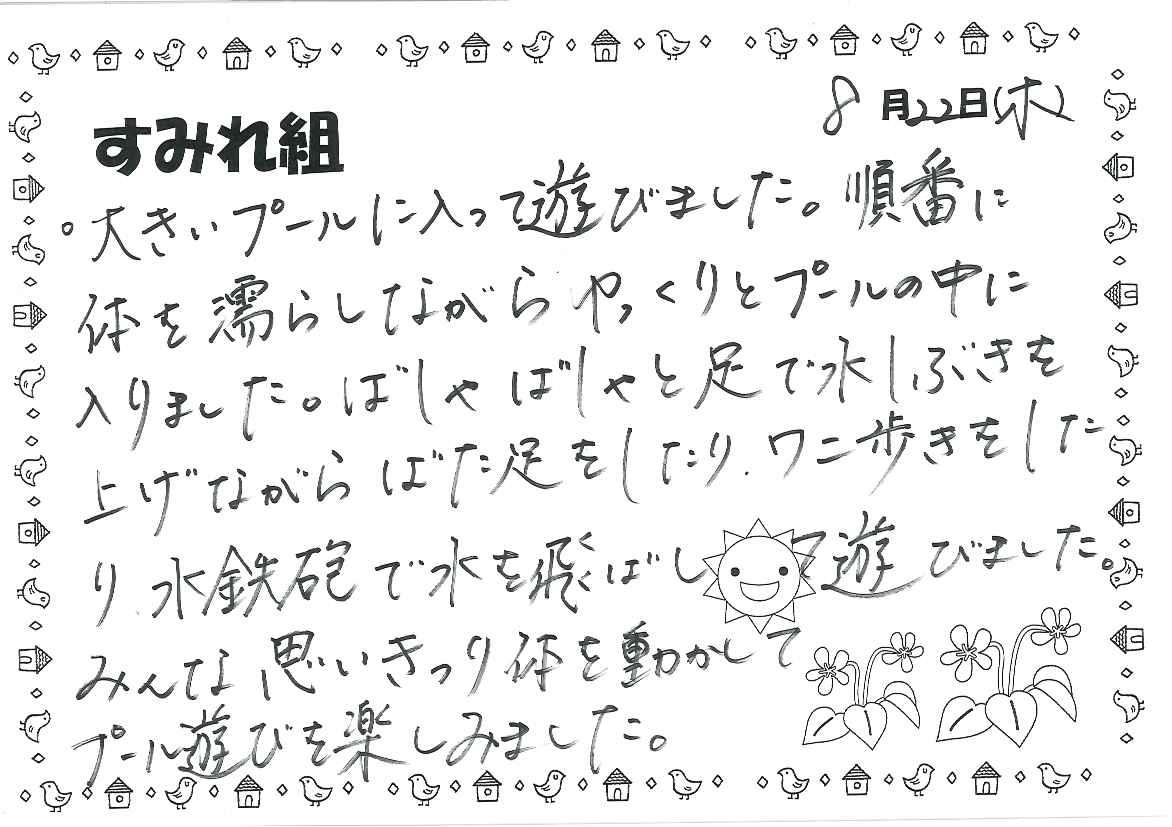 8月22日(木)
すみれ組
。大きいプールに入って遊びました。順番に
体を濡らしながらゆっくりとプールの中に
入りました。ばしゃばしゃと足で水しぶきを
上げながらばた足をしたり、ワニ歩きをした
り、水鉄砲で水を飛ばして遊びました。
みんな思いきり体を動かして
プール遊びを楽しみました。